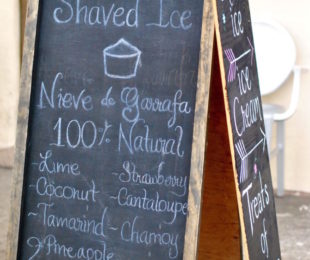 Shaved Ice
Nieve de Garrafa
100% Natural
-Lime -Strawberry
-Coconut -Cantaloupe
-Tamarind -Chamoy
Pineapple
ice
Ice
Cream
Treats
of